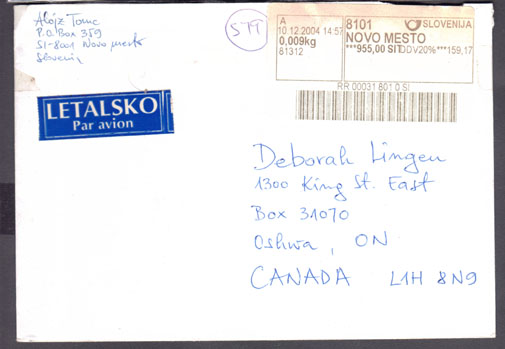 Alojz Tomc
P.O. Box 359
SI-8001 Novo mesto
Slovenia
STT
A
10.12.2004 14:57
0,009kg
81312
8101 SLOVENIJA
NOVO MESTO
***955,00 SIT DDV20% ***159,17
RR 00031 801 0 SI
LETALSKO
Par avion
Deborah Lingen
1300 King St. East
Box 31070
Oshwa, ON
CANADA L1H 8N9